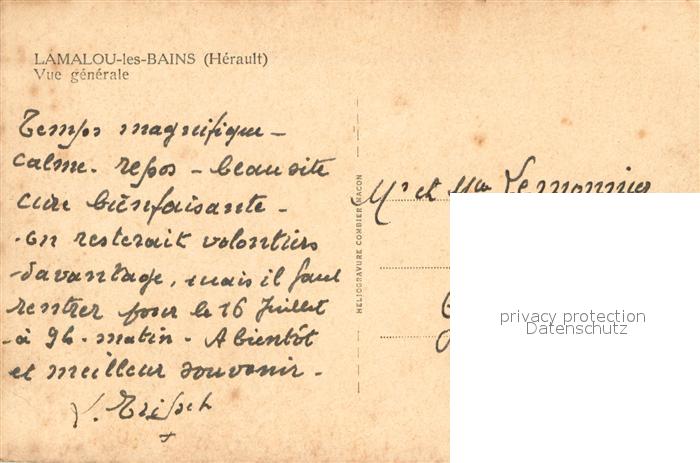 LAMALOU-les-BAINS (Hérault)
Vue générale
Temps magnifique -
calme. repos - beau site
cure bienfaisante -
- on resterait volontiers
davantage, mais il faut
rentrer pour le 16 Juillet
- à 9h. matin - A bientôt
et meilleur souvenir -
HELIOGRAVURE COMBIER MACON
Mr et Mme Lemonnier
privacy protection
Datenschutz